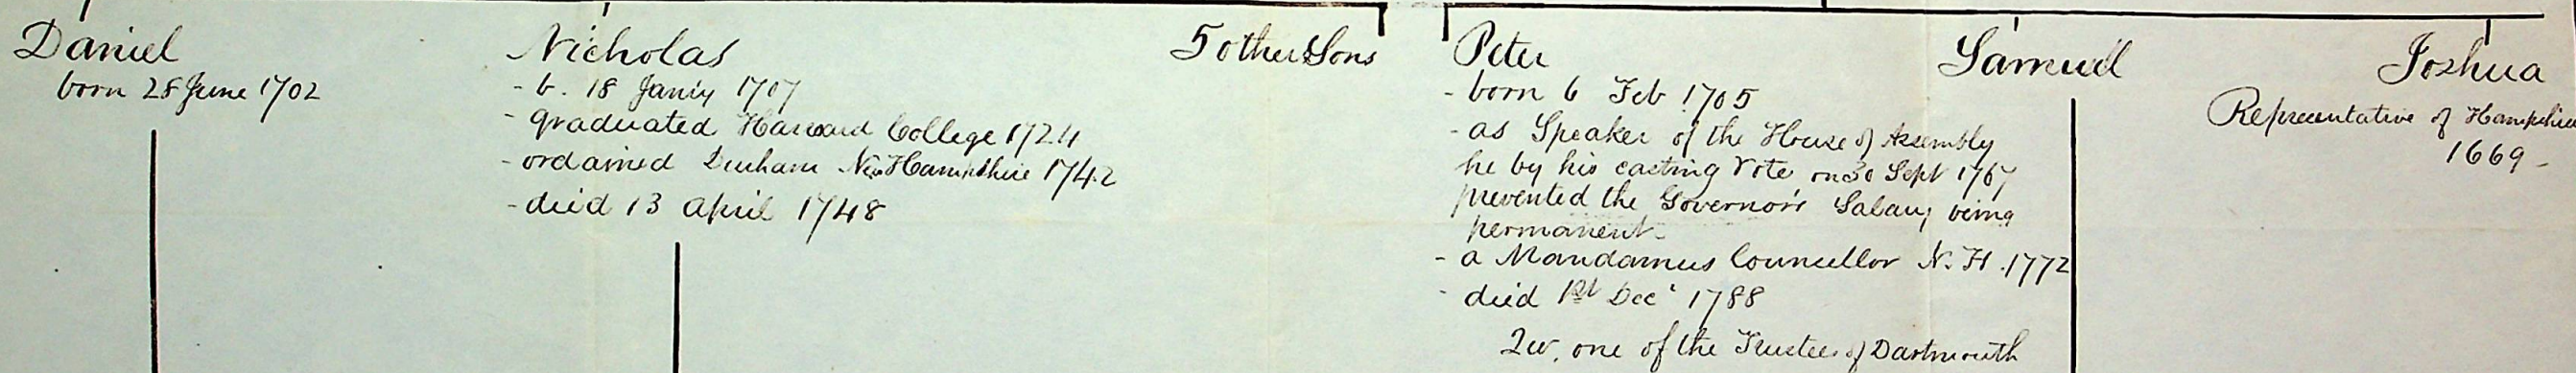 Daniel
born 28 June 1702
Nicholas
- b. 18 Jan'y 1707
- graduated Harvard College 1724
- ordained Durham New Hampshire 1742
- died 13 April 1748
5 other Sons
Peter
- born 6 Feb 1705
- as Speaker of the House of Assembly
he by his casting Vote on 30 Sept 1767
prevented the Governor's Salary being
permanent.
- a Mandamus Councellor N. H. 1772
- died 1st Dec' 1788
Qu. one of the Trustees of Dartmouth
Samuel
Joshua
Representative of Hampshire
1669 -